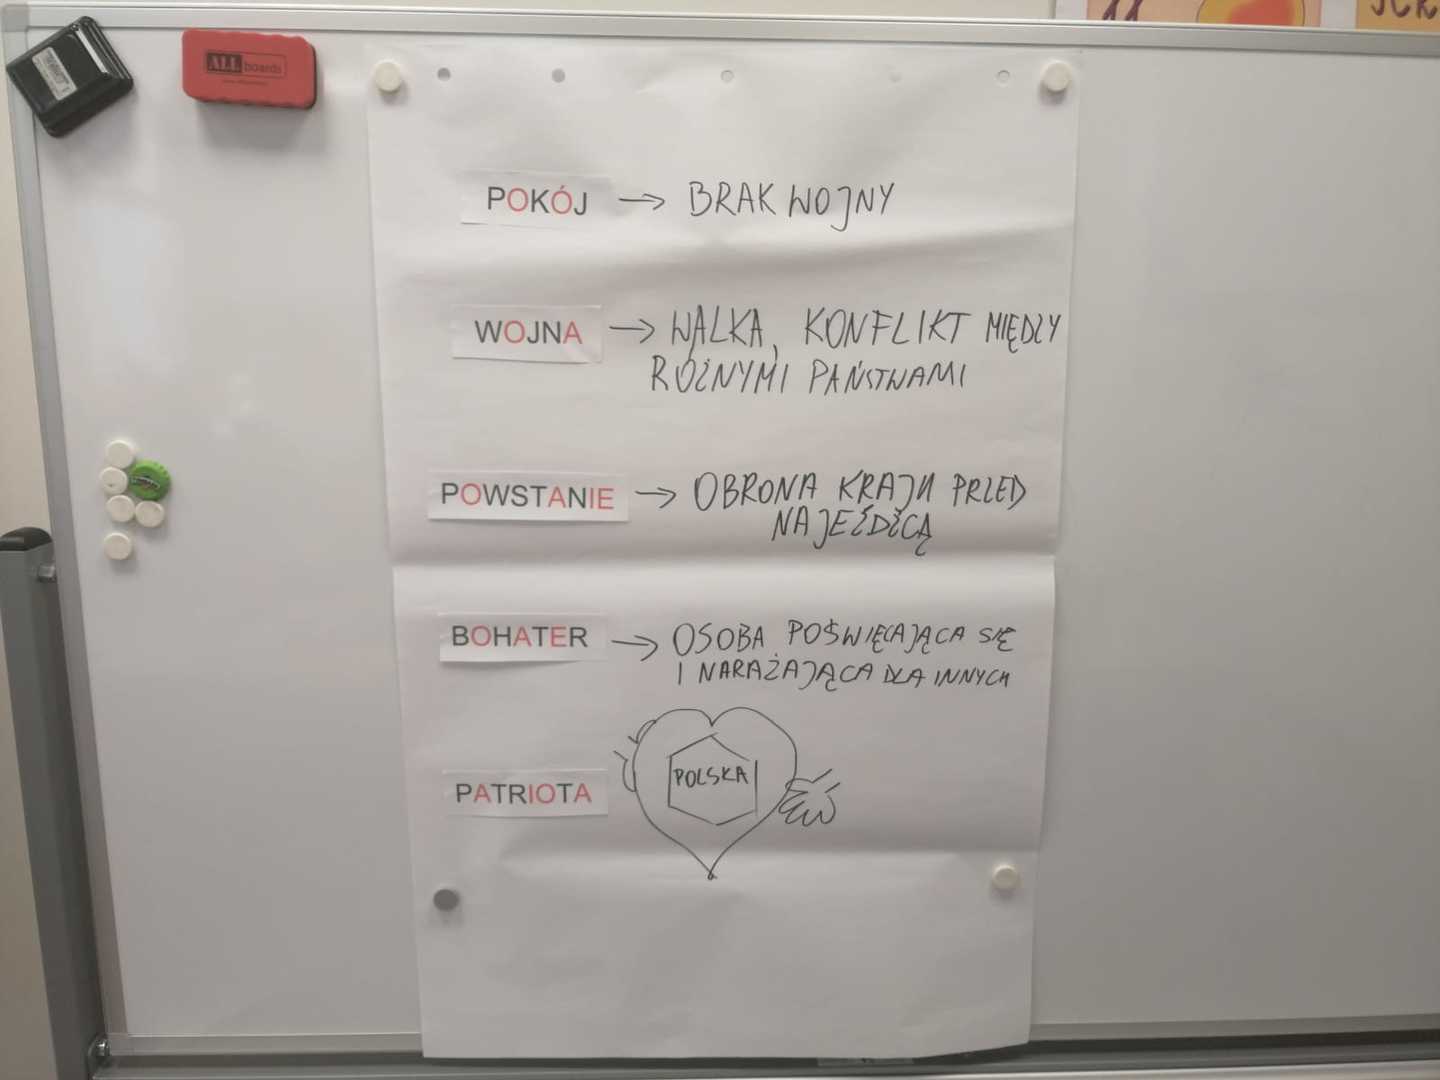 ALL boards
POKÓJ → BRAK WOJNY
WOJNA → WALKA, KONFLIKT MIĘDZY
RÓŻNYMI PAŃSTWAMI
POWSTANIE → OBRONA KRAJU PRZED
NAJEŹDŹCĄ
BOHATER → OSOBA POŚWIĘCAJĄCA SIĘ
I NARAŻAJĄCA DLA INNYCH
PATRIOTA
POLSKA